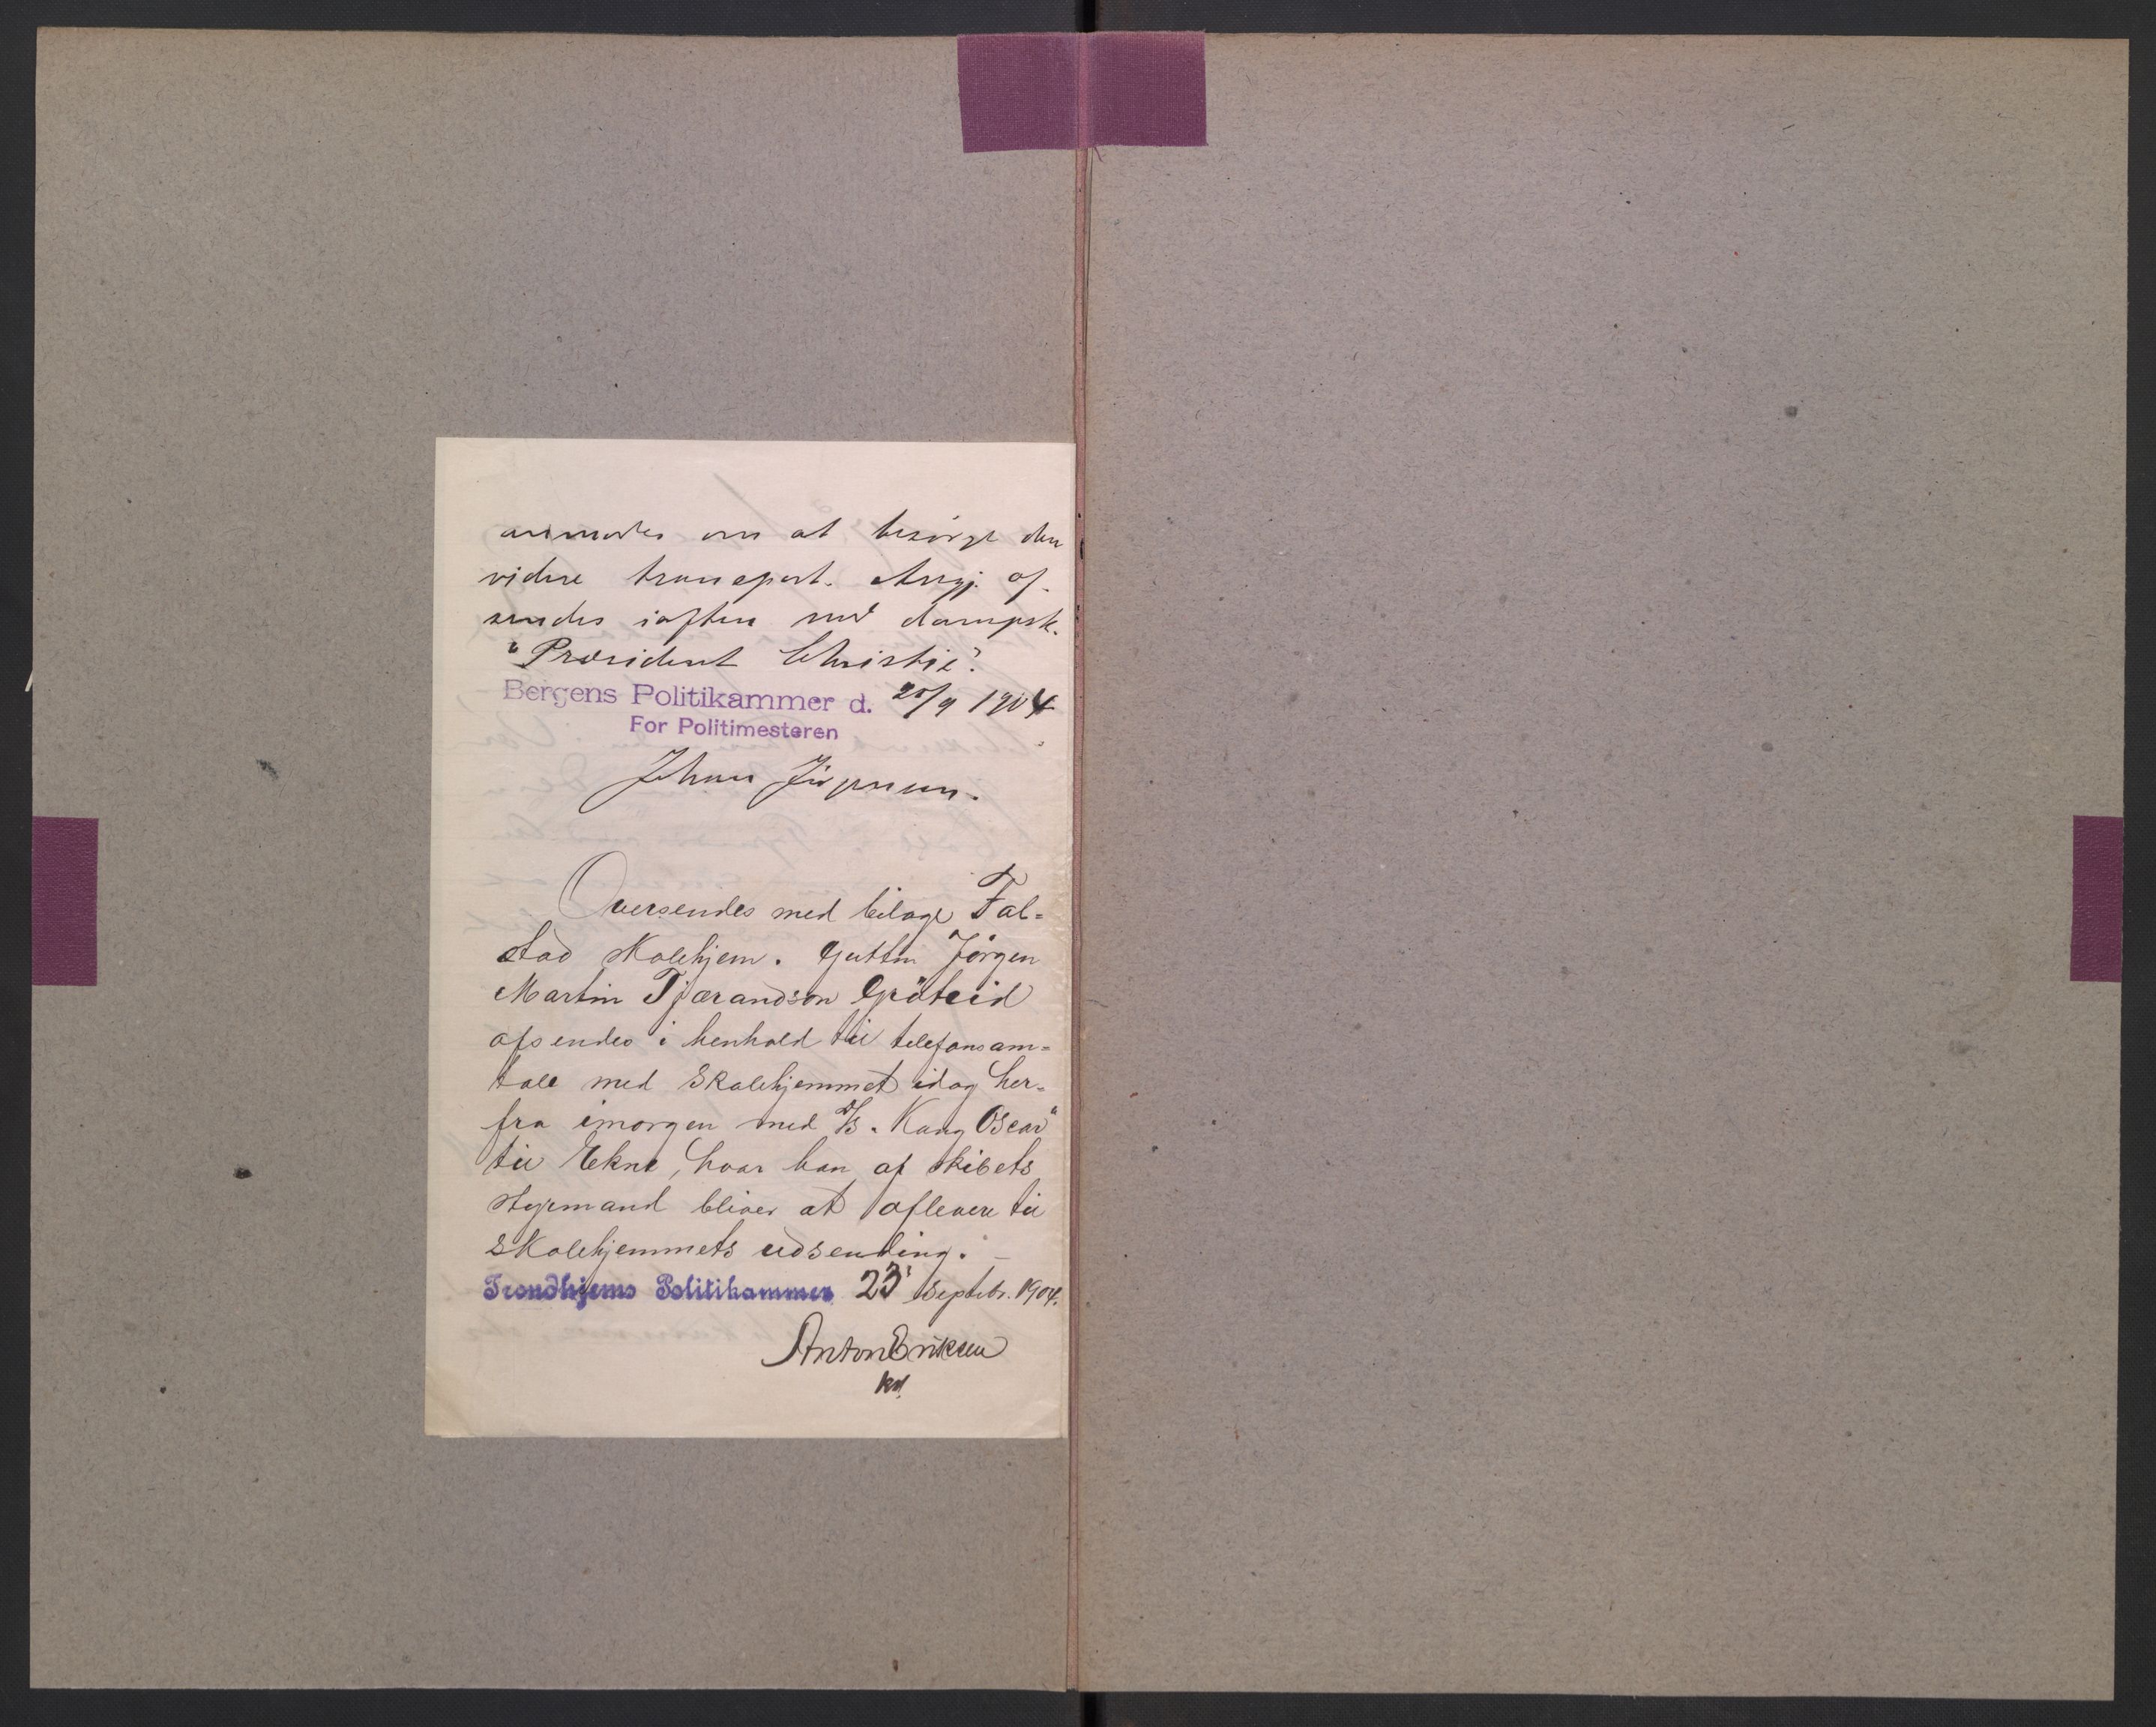 anmodes om at besørge den
videre transport. Angj. af-
sendes iaften med dampsk.
"Præsident Christie".
Bergens Politikammer d. 20/9 1904
For Politimesteren
Oversendes med bilage Fal=
stad Skolehjem. Gutten Jörgen
Martin Tjærandson Gröteid
afsendes i henhold til telefonsam=
tale med Skolehjemmet idag her=
fra imorgen med D/S. "Kong Oscar"
til Ekne, hvor han af skibets
styrmand bliver at aflevere til
Skolehjemmets udsending. –
Trondhjems Politikammer 23' Septebr. 1904.
Anton Eriksen